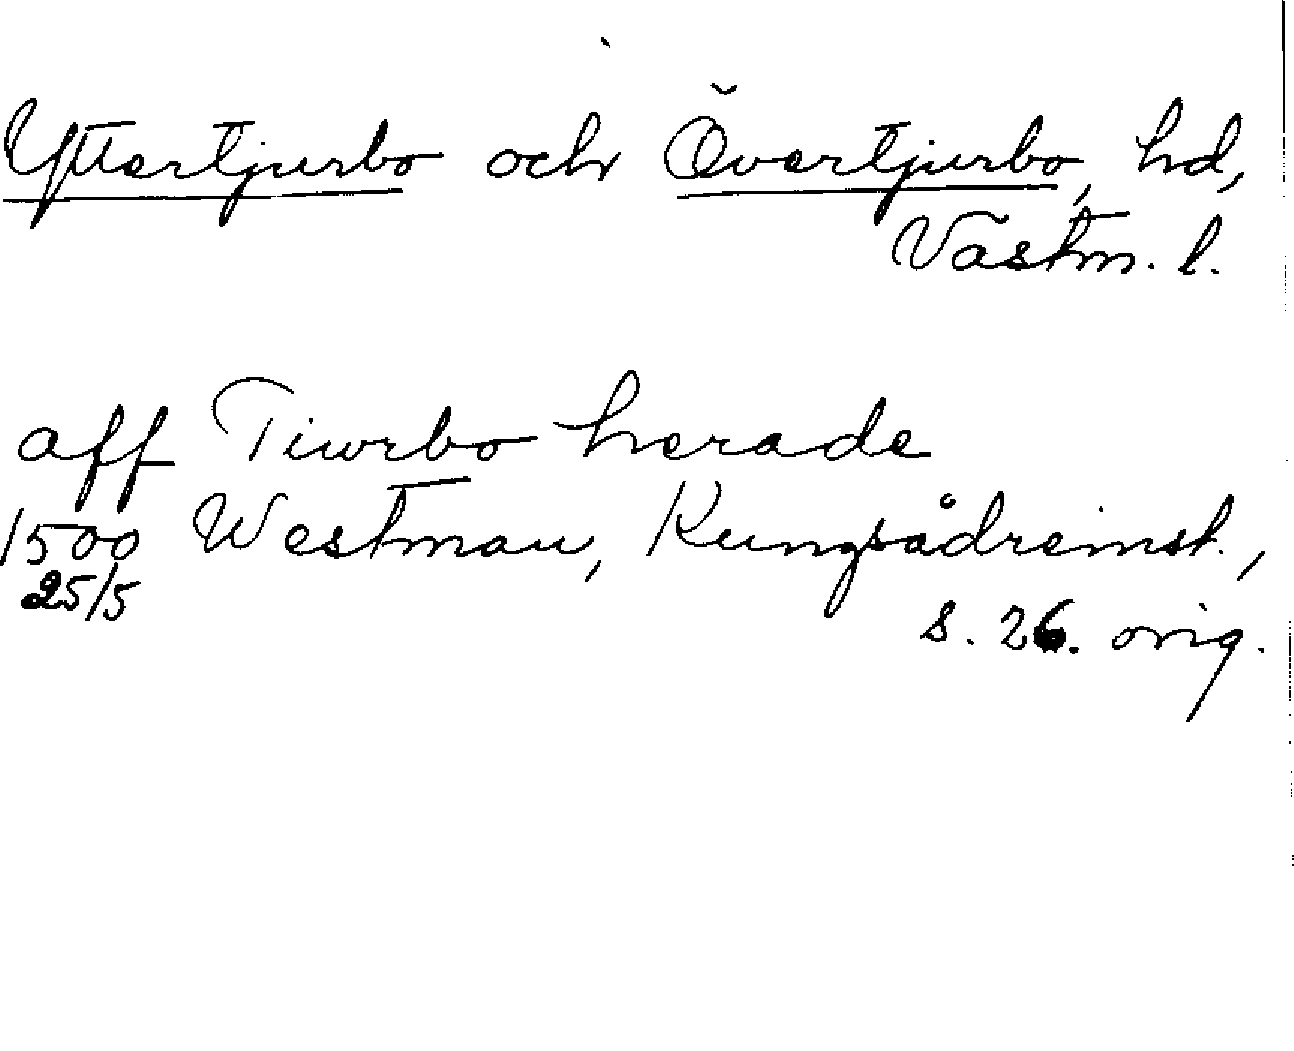 Yttertjurbo och Övertjurbo, hd,
Västm. l.
aff Tiwrbo herade
1500 Westman, Kungsådreinst.,
25/5
s. 26. orig.